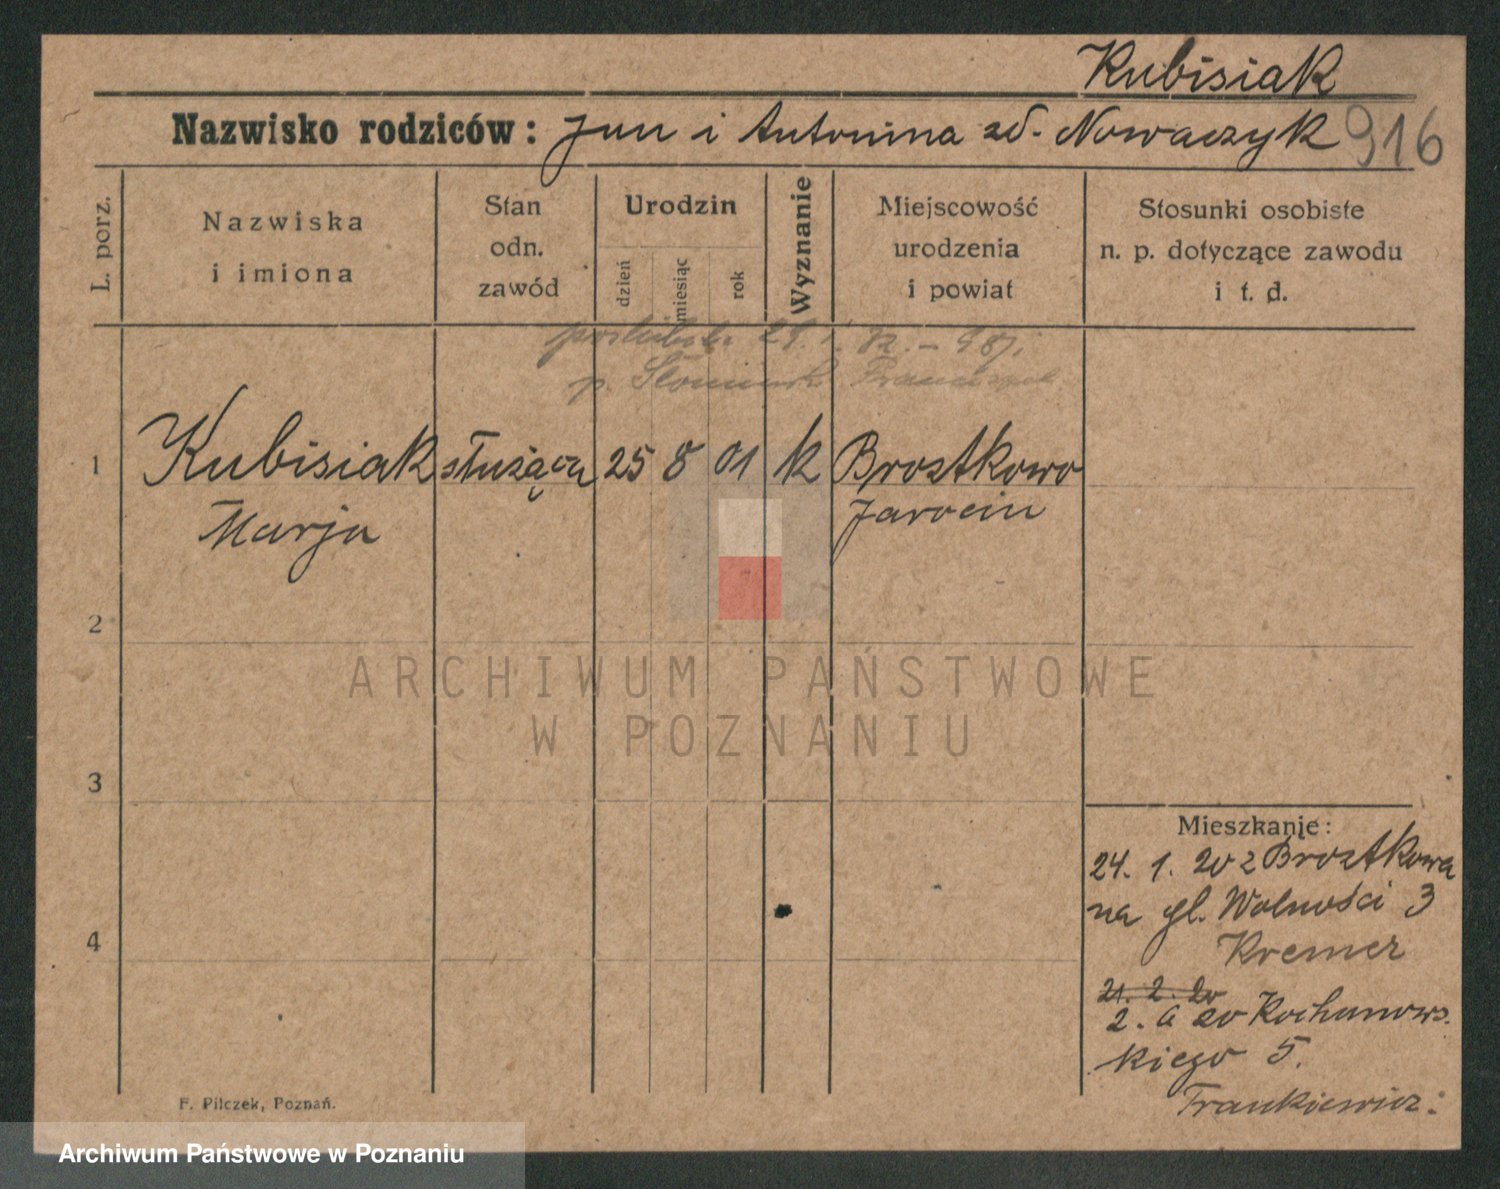 Kubisiak
Nazwisko rodziców: Jan i Antonina zd. Nowaczyk 916
L. porz.
Nazwiska
i imiona
Stan
odn.
zawód
Urodzin
dzień
miesiąc
rok
Wyznanie
Miejscowość
urodzenia
i powiat
Stosunki osobiste
n. p. dotyczące zawodu
i t. d.
29.
p. Franciszek
1 Kubisiak służąca 25 8 01 k Brostkowo
Marja Jarocin
2
3
4
ARCHIWUM PAŃSTWOWE
W POZNANIU
Mieszkanie:
24. 1. 20 z Brostkowa
na pl. Wolności 3
Kremer
21. 2. 20
2. 6 20 Kochanows.
kiego 5.
Frankiewicz.
F. Pilczek, Poznań.
Archiwum Państwowe w Poznaniu